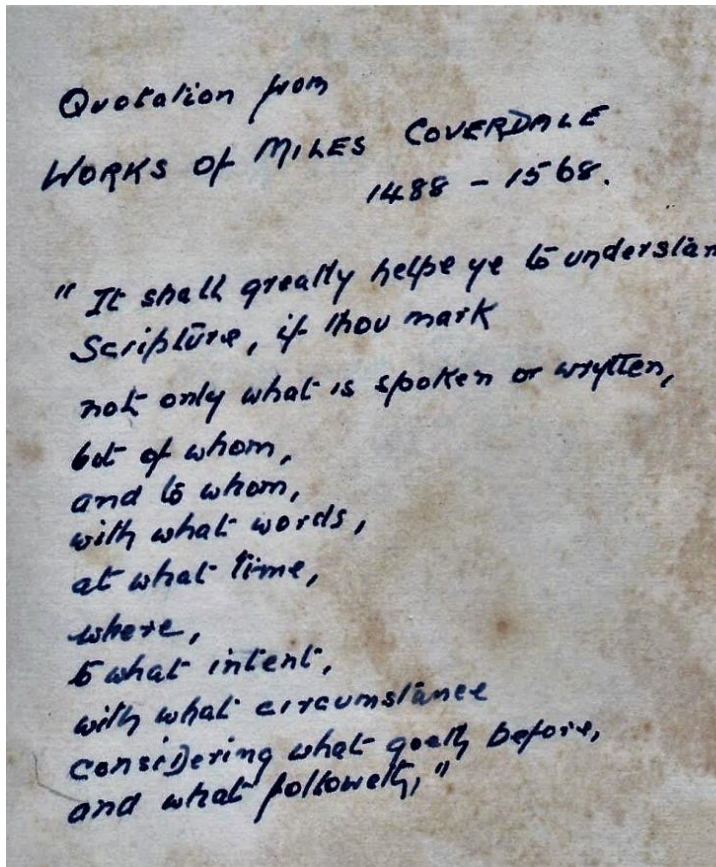 Quotation from
WORKS Of MILES COVERDALE
1488 - 1568.
" It shall greatly helpe ye to understan
Scripture, if thou mark
not only what is spoken or wrytten,
but of whom,
and to whom,
with what words,
at what time,
where,
to what intent,
with what circumstance
considering what goeth before,
and what followeth,"